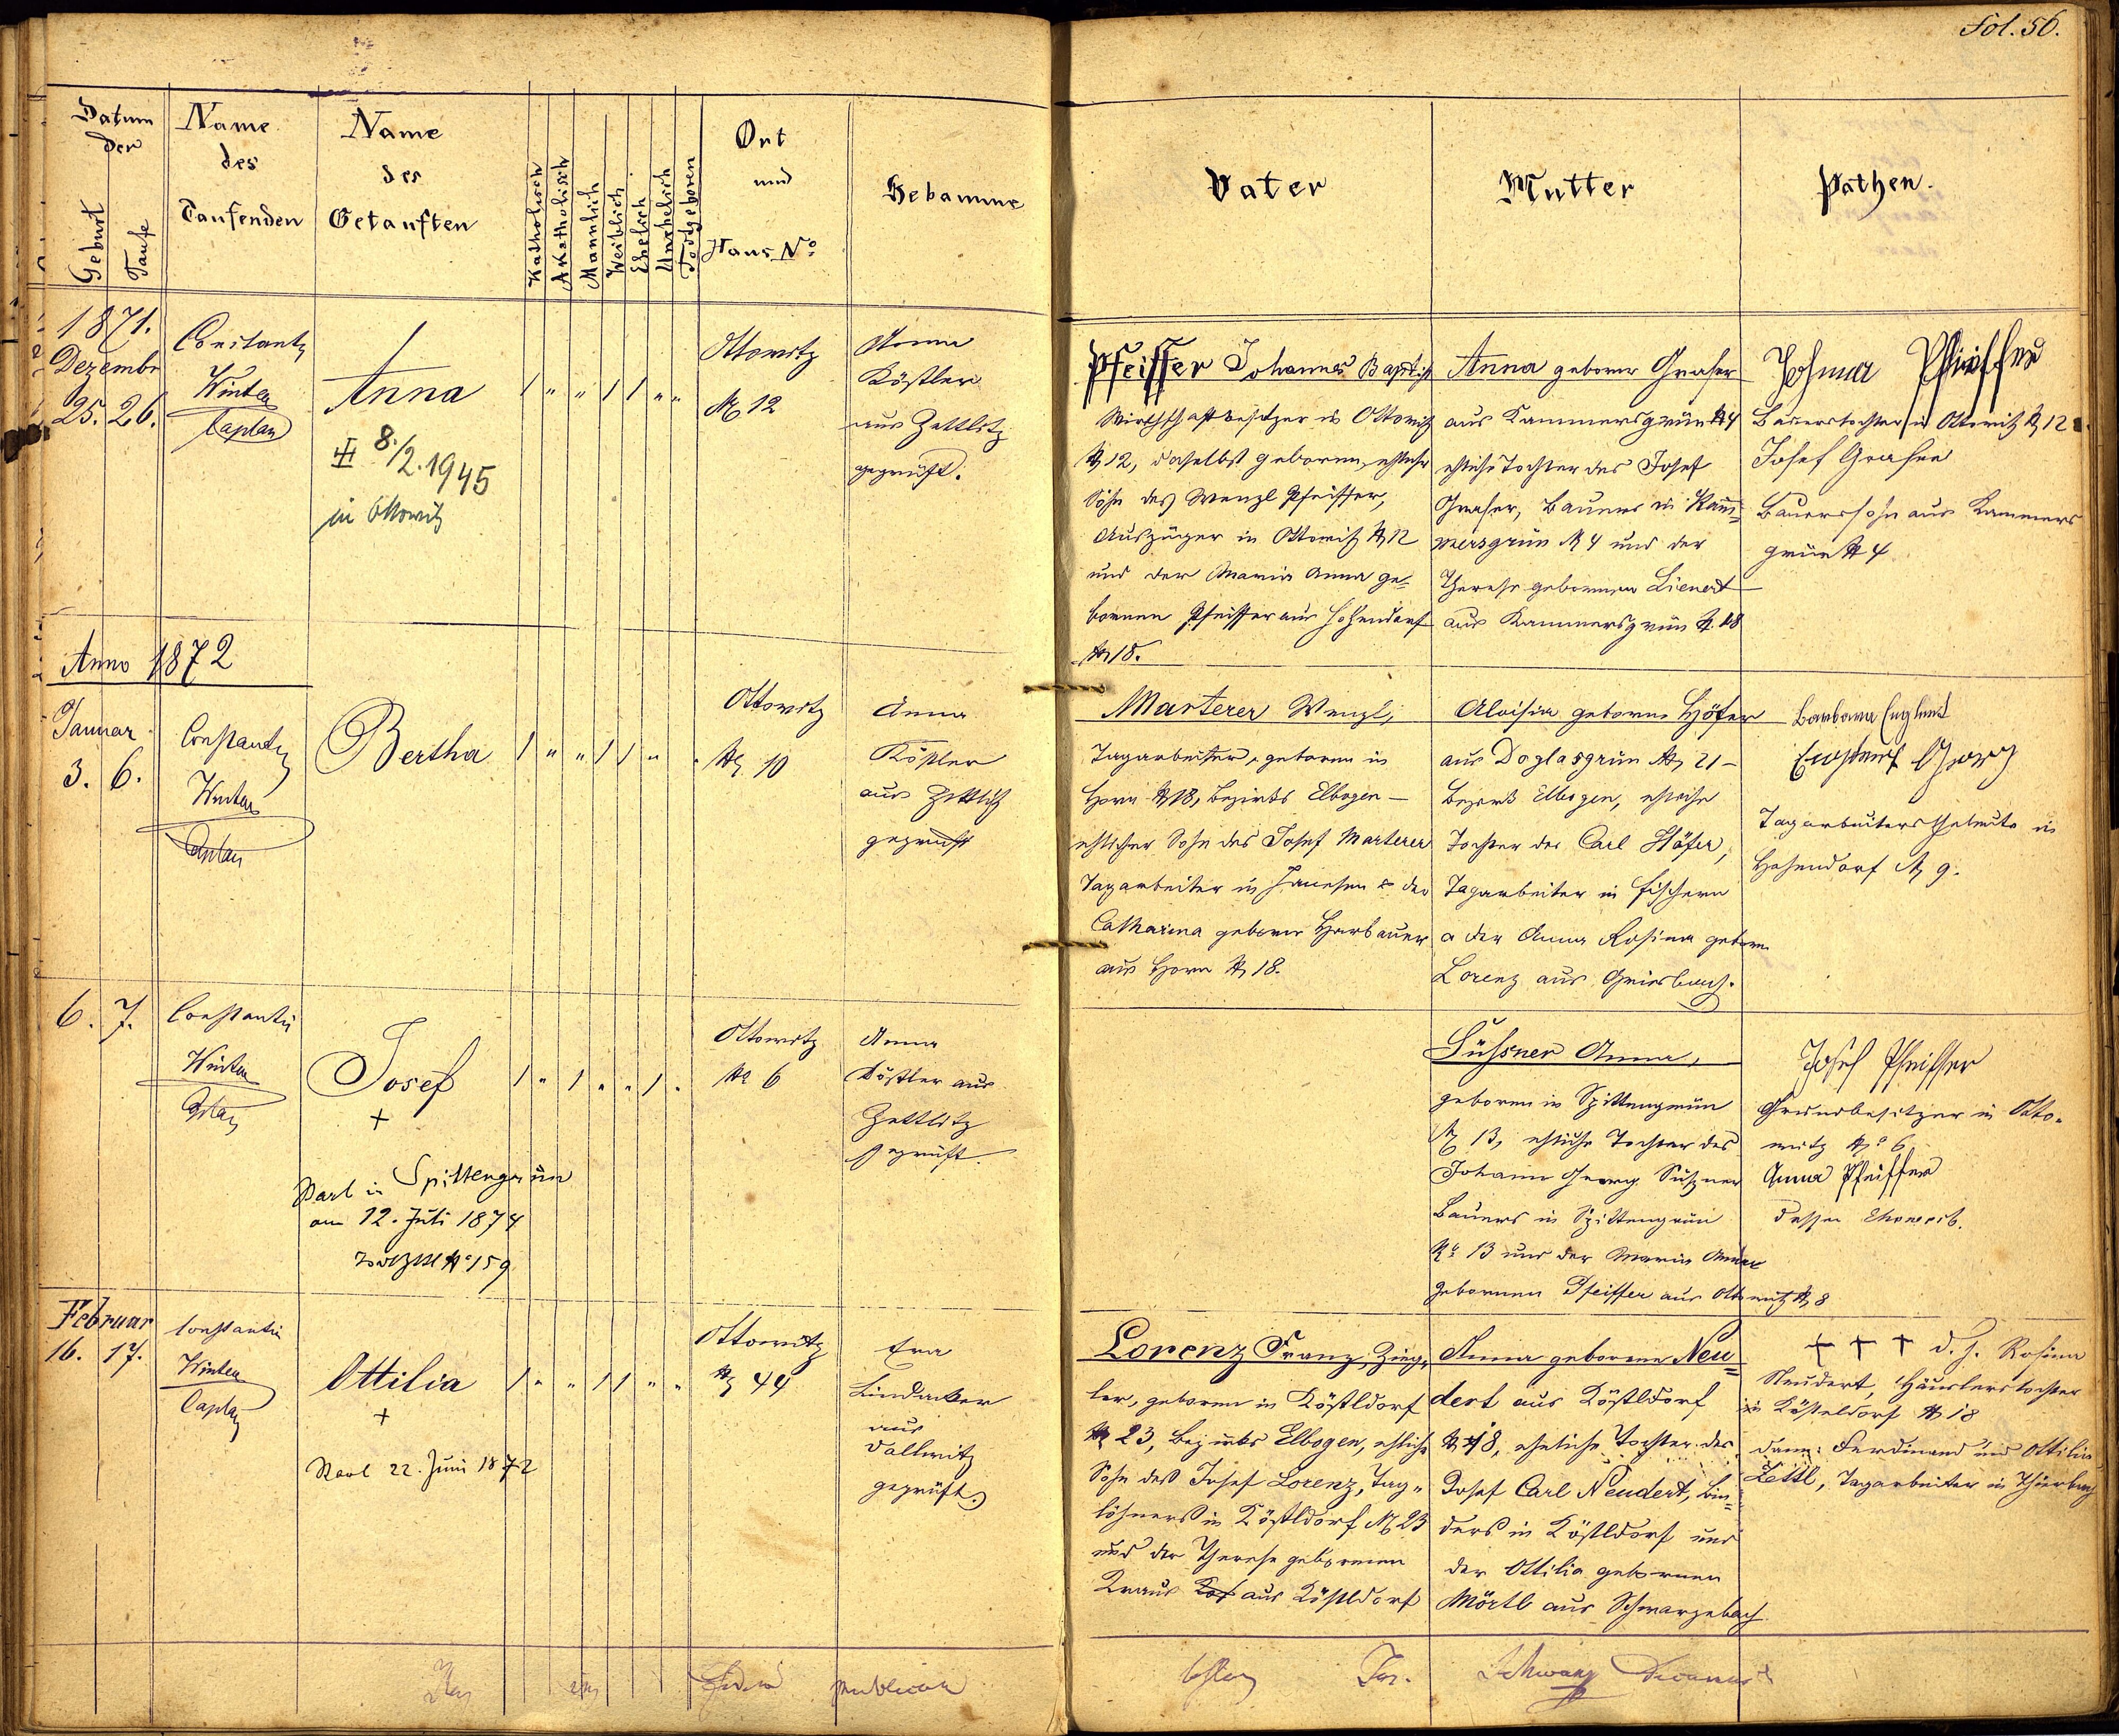 Fol. 56.
Datum der
Geburt
Taufe
Name des Taufenden
Name des Getauften
Katholisch
Akatholisch
Mannlich
Weiblich
Ehelich
Unehelich
Todtgeboren
Ort und Haus No
Hebamme
Vater
Mutter
Pathen.
1871.
Dezember
25. 26.
Constantin
Winter
Caplan
Anna
8./2. 1945
in Ottowitz
Ottowitz
No 12
Anna
Köstler
aus Zettlitz
geprüft.
Pfeiffer Johannes Baptist
Wirthschaftsbesitzer in Ottowitz
No 12, daselbst geboren, ehelicher
Sohn des Wenzl Pfeiffer,
Auszüger in Ottowitz No 12
und der Maria Anna ge-
bornen Pfeiffer aus Hohendorf
No 18.
Anna geborne Grafer
aus Kammersgrün No 4
eheliche Tochter des Josef
Grafer, Bauers in Kam-
mersgrün No 4 und der
Therese gebornen Lienert
aus Kammersgrün No 18
Johanna Pfeiffer
Bauerstochter in Ottowitz No 12.
Josef Grafer
Bauerssohn aus Kammers
grün No 4
Anno 1872
Januar
3. 6.
Constantin
Winter
Caplan
Bertha
Ottowitz
No 10
Anna
Köstler
aus Zettlitz
geprüft
Marterer Wenzl,
Tagarbeiter, geboren in
Horn No 18, Bezirks Elbogen –
ehelicher Sohn des Josef Marterer
Tagarbeiter in Janessen & der
Catharina geborne Harbauer
aus Horn No 18.
Aloisia geborne Höfer
aus Doglasgrün No 21 –
Bezirk Elbogen, eheliche
Tochter des Carl Höfer,
Tagarbeiter in Fischern
& der Anna Rosina geborne
Lorenz aus Griesbach.
Barbara Englert
Georg
Tagarbeiters Eheleute in
Hohendorf No 9.
6. 7.
Constantin
Winter
Caplan
Josef
+
Starb in Spittengrün
am 12. Juli 1874
No 159
Ottowitz
No 6
Anna
Köstler aus
Zettlitz
geprüft.
Süssner Anna,
geboren in Spittengrün
No 13, eheliche Tochter des
Johann Georg Süssner
Bauers in Spittengrün
No 13 und der Maria Anna
gebornen Pfeiffer aus Ottowitz No 8
Josef Pfeiffer
Grundbesitzer in Otto-
witz No 6
Anna Pfeiffer
dessen Eheweib.
Februar
16. 17.
Constantin
Winter
Caplan
Ottilia
+
Starb 22. Juni 1872
Ottowitz
No 44
Eva
Lindacker
aus
Dallwitz
geprüft.
Lorenz Franz, Zieg-
ler, geboren in Köstldorf
No 23, Bezirks Elbogen, ehelicher
Sohn des Josef Lorenz, Tag-
löhners in Köstldorf No 23
und der Therese gebornen
Kraus aus Köstldorf
Anna geborene Neu-
dert aus Köstldorf
No 18, eheliche Tochter des
Josef Carl Neudert, Bin-
ders in Köstldorf und
der Ottilia gebornen
Mörtl aus Schwarzebach.
+ + + d. h. Rosina
Neudert, Häuslerstochter
in Köstldorf No 18
dann: Ferdinand und Ottilia
Zettl, Tagarbeiter in Thierbach
Schwarz